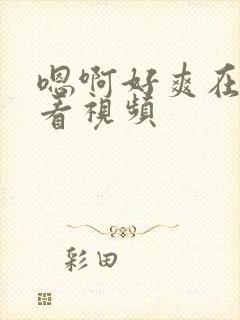 嗯啊好爽在
看視頻
彩田